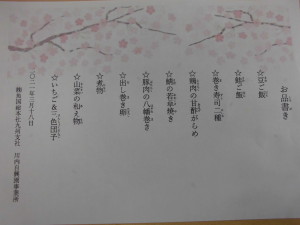 お品書き
☆豆ご飯
☆鯛ご飯
☆巻き寿司二種
☆鶏肉の甘酢がらめ
☆鯖の若草焼き
☆豚肉の八幡巻き
☆出し巻き卵
☆煮物
☆山菜の和え物
☆いちご&三色団子
二〇二一年三月十八日
㈱魚国総本社九州支社